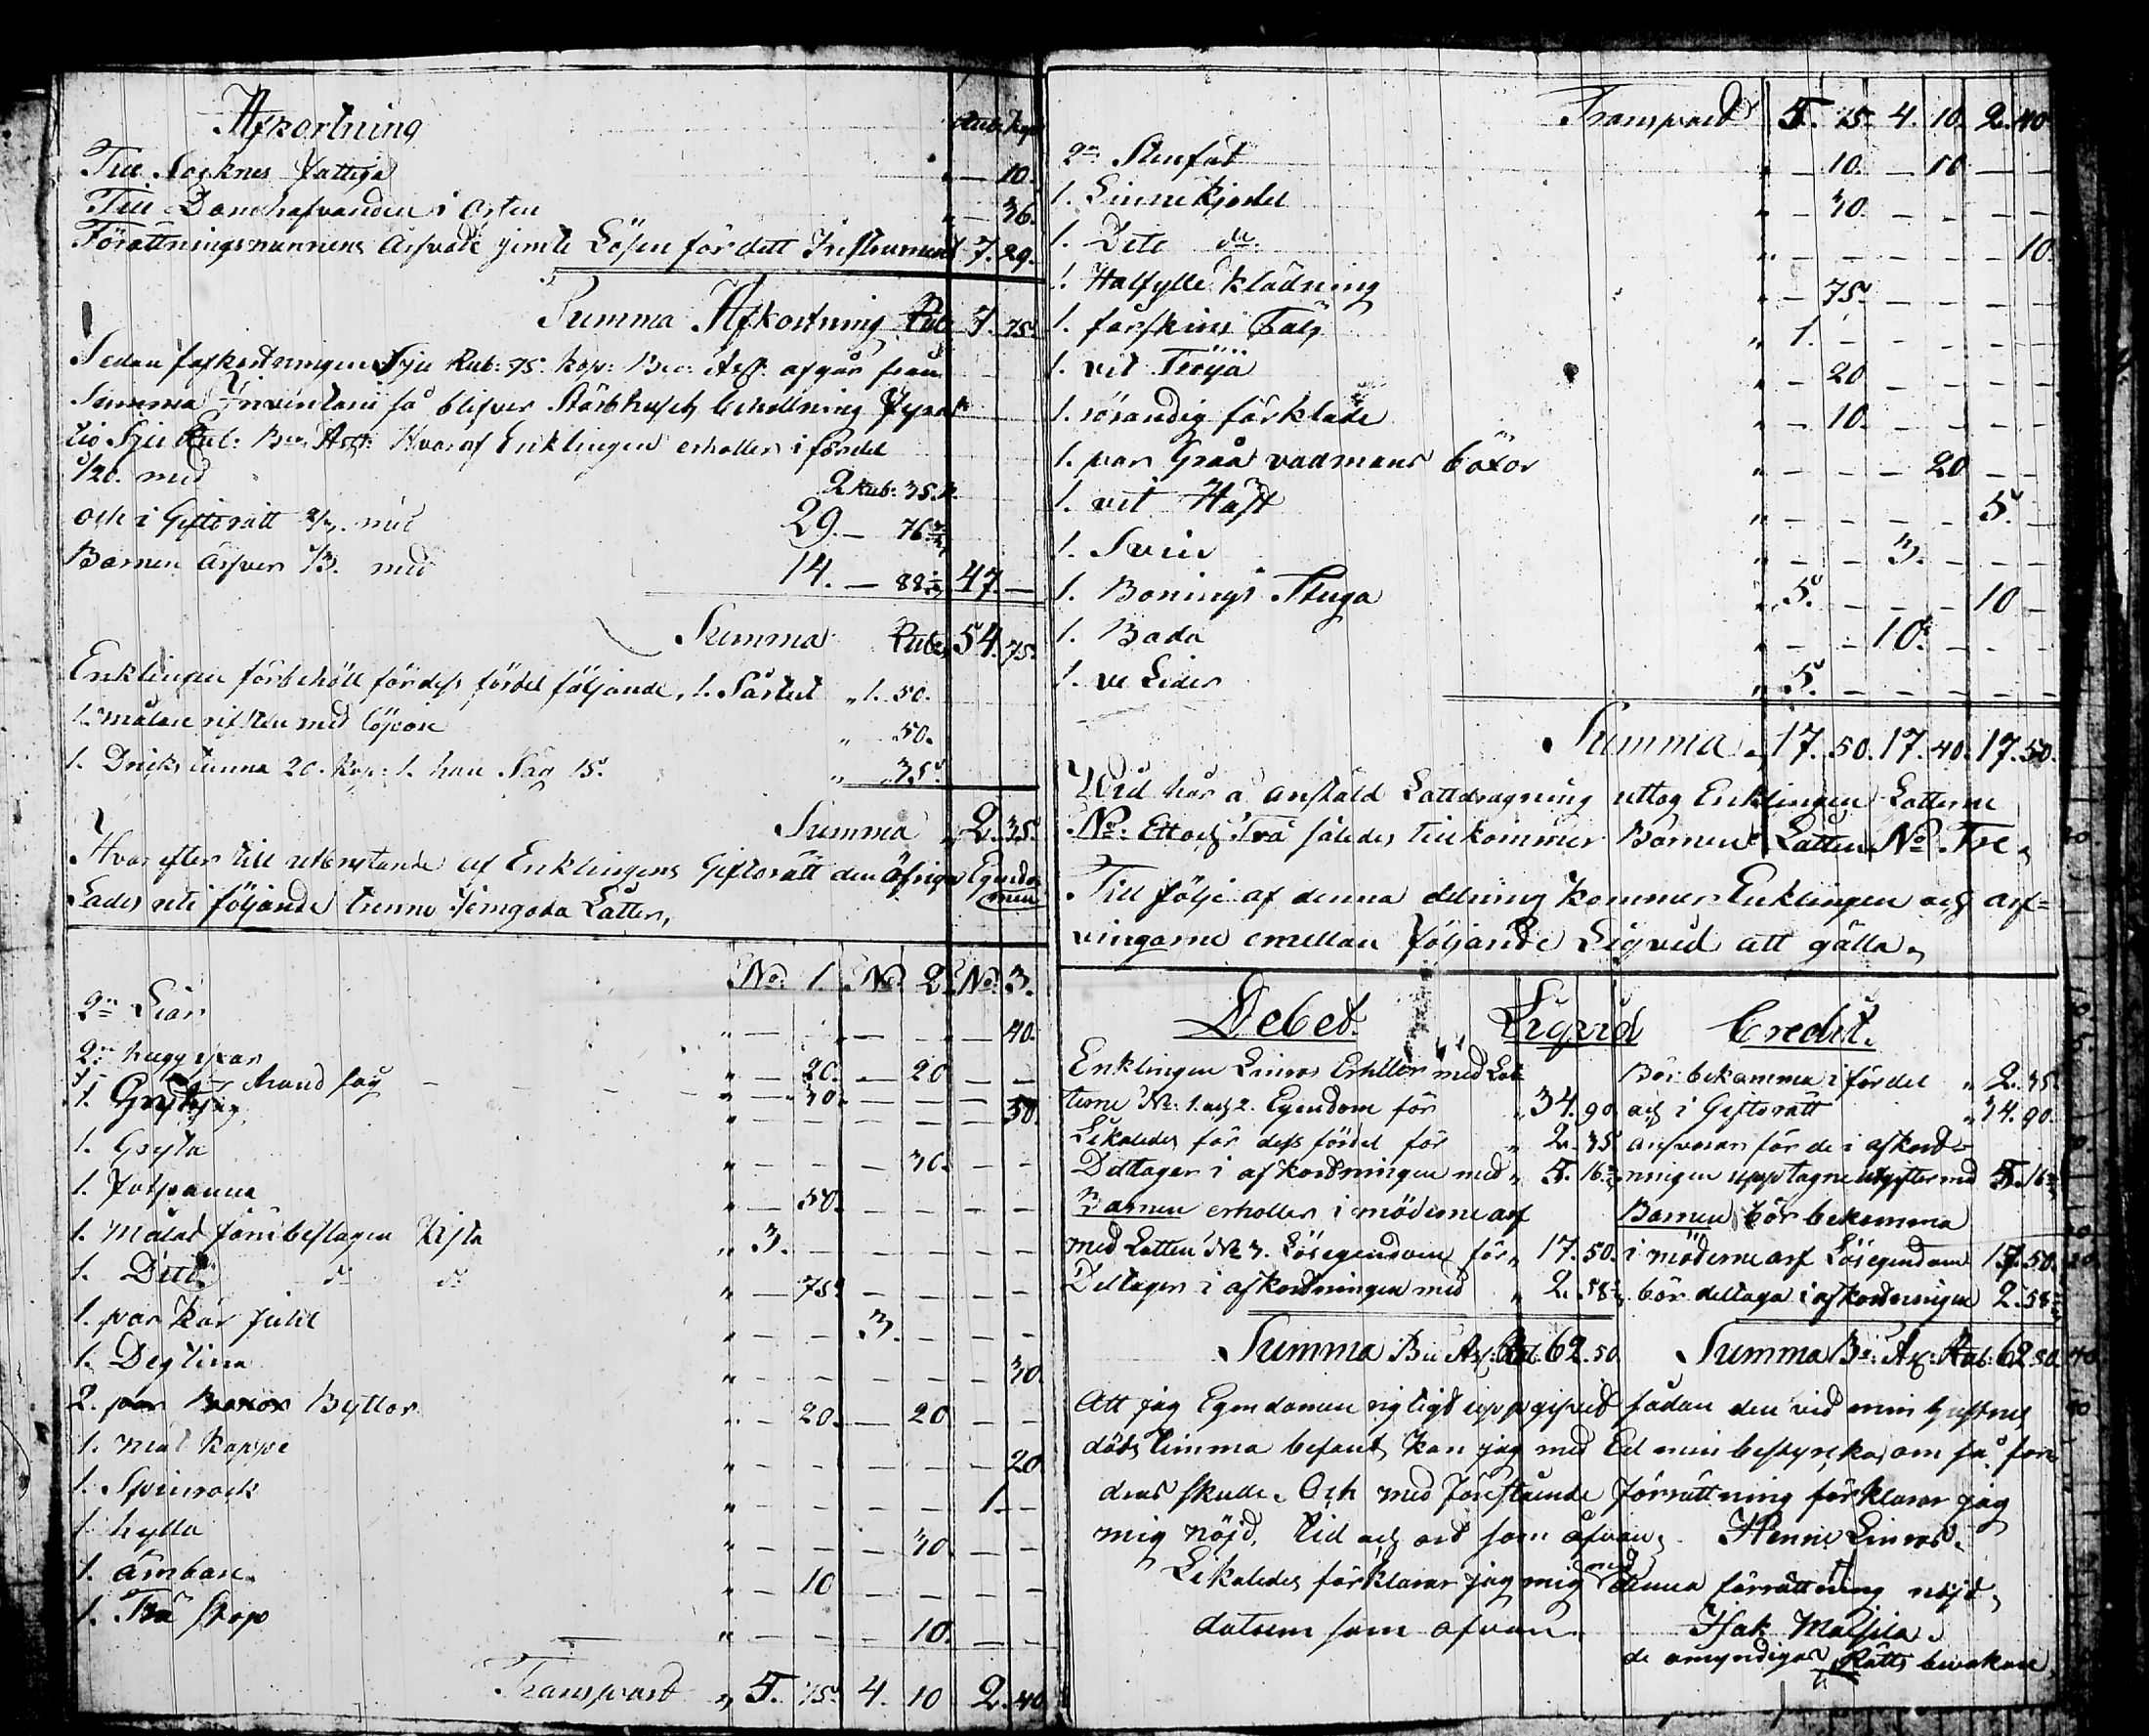 Afkortning
Rub. Kop.
Till Socknes fattiga " — 10.
Till Domhafvanden i Orten " — 36.
Förättningsmannens Arfvode jemte Lösen för dett Instrument 7. 29.
Summa Afkortning Rub. 7. 75.
Sedan afkortningen Sju Rub: 75. kop: Bco: Ass: afgår från
Summa Inventarii så blifver Stärbhusets behollning Fyrat
tio Sju Rub: Bco Ass: Hvaraf Enklingen erholler i fördel
1/20. med 2 Rub: 35. k.
och i Giftorätt 2/3. med 29. — 76 2/3
Barnen Arfver 1/3. med 14. — 88 1/3 47. —
Summa Rub. 54. 75.
Enklingen förbehölt för dess fördel följande, 1. " 1. 50.
1. med " 50.
1. Dricks tunna 20. kop: 1. Såg 15. " 35.
Summa " 2. 35.
Hvarefter till utbrytande af Enklingens Giftorätt den öfriga Egendo
men
Lades uti följande trenne jemgoda Låtter,
No: 1. No. 2. No. 3.
2ne Liar " — . — — — 40.
2ne hugg yxar " — 20. — 20 — —
1. Stand såg " — 30. — — — —
1. Gryta " — — — — — 50.
1. Gryta " — — — 30. — —
1. Potpanna " — 50. — — — —
1. Målat järnbeslagen Kista " 3. — — — — —
1. Dito do do " — 75. — — — —
1. par kär " — — 3. — — —
1. Degtina " — — — — — 30.
2. par Byttor " — 20. — 20 — —
1. mat koppe " — — — — — 20.
1. Spinrock " — — — — 1. —
1. hylla " — — — 30. — —
1. ämbare " — 10 — — — —
1. Trä stop " — — — 10. — —
Transport " 5. 75. 4. 10 2. 40
Transport 5. 75. 4. 10. 2. 40.
2ne Stenfat " — 10. — 10 — —
1. Linne kjortel " — 30. — — — —
1. Dito do. " — — — — — 10.
1. Halfylle Klädning " — 75. — — — —
1. fårskins Päls " 1. — — — — —
1. vit Tröja " — 20 — — — —
1. rörandig förkläde " — 10. — — — —
1. par Gråa vadmans böxor " — — — 20 — —
1. vit Häst " — — — — 5. —
1. Svin " — — 3. — — —
1. Bonings Stuga " 5. — — — 10 —
1. Boda " — — 10. — — —
1. ve Lider " 5. — — — — —
Summa " 17. 50. 17. 40. 17. 50.
Wid här å anstäld Lottdragning uttog Enklingen Lotterne
No: Ett och Två således tillkommer Barnen Lotten No Tre,
Till följe af denna delning kommer Enklingen och arf=
vingarne emellan följande Liqvid att gälla,
Debet. Liqvid Credit.
Enklingen Linros Erholler med Lot Bör bekomma i fördel " 2. 35.
terne No. 1. och 2. Egendom för " 34. 90. och i Giftorätt " 34. 90.
Likaledes för dess fördel för " 2. 35. ansvarar för de i afkort=
Deltager i afkortningen med " 5. 16 2/3 ningen upptagne utgifter med 5. 16 2/3
Barnen erholler i möderne arf Barnen bör bekomma
med Lotten No 3. Lösegendom för " 17. 50. i möderne arf Lösegendom 17. 50.
Deltager i afkortningen med " 2. 58 1/3 bör deltaga i afkortningen 2. 58 1/3
Summa Bco Ass: Rub. 62. 50 Summa Bco: Ass: Rub: 62. 50.
Att jag Egendomen rigtigt uppgifvit sådan den vid min hustrus
döds timma befants kan jag med Ed min bestyrka, om så for
dras skulle. Och med förestående förrättning förklarar jag
mig nöjd, tid och ort som ofvan, Henric Linros.
Likaledes förklarar jag mig med denna förrättning nöjd,
datum som ofvan. Isak Matsila.
de omyndigas Rätts bevakare